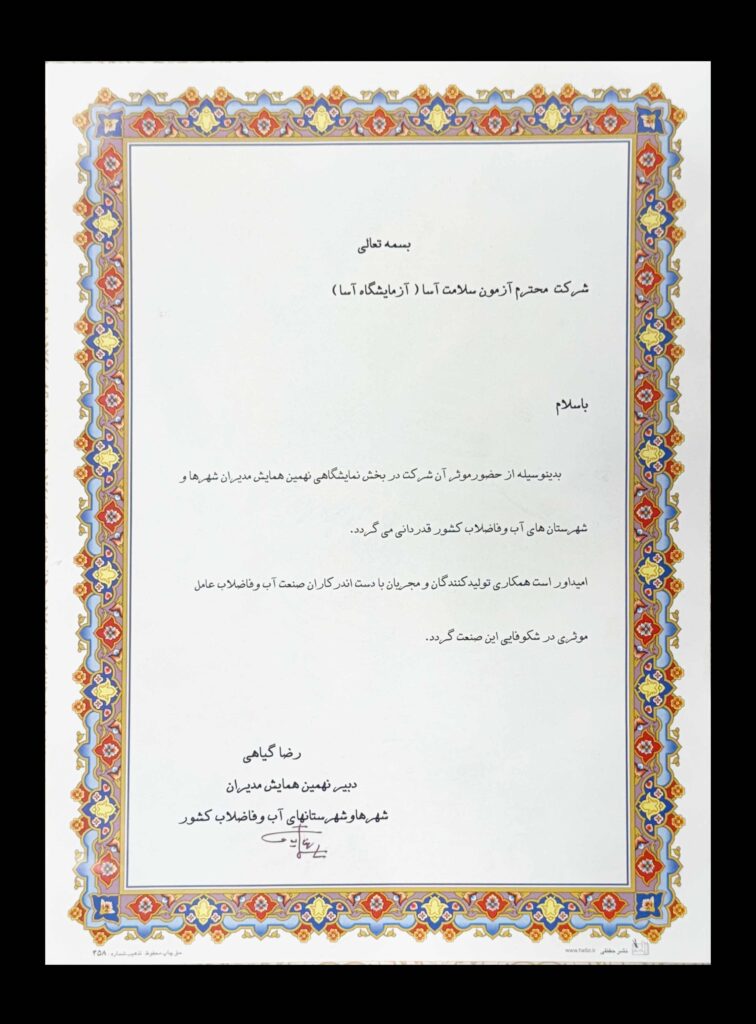 بسمه تعالی
شرکت محترم آزمون سلامت آسا ( آزمایشگاه آسا )
باسلام
بدینوسیله از حضورموثر آن شرکت در بخش نمایشگاهی نهمین همایش مدیران شهرها و
شهرستان های آب وفاضلاب کشور قدردانی می گردد.
امیداور است همکاری تولیدکنندگان و مجریان با دست اندرکاران صنعت آب وفاضلاب عامل
موثری در شکوفایی این صنعت گردد.
رضا گیاهی
دبیر نهمین همایش مدیران
شهرهاوشهرستانهای آب وفاضلاب کشور
نشر حفظی www.hefzi.ir
حق چاپ محفوظ تذهیب شماره : ۴۵۸